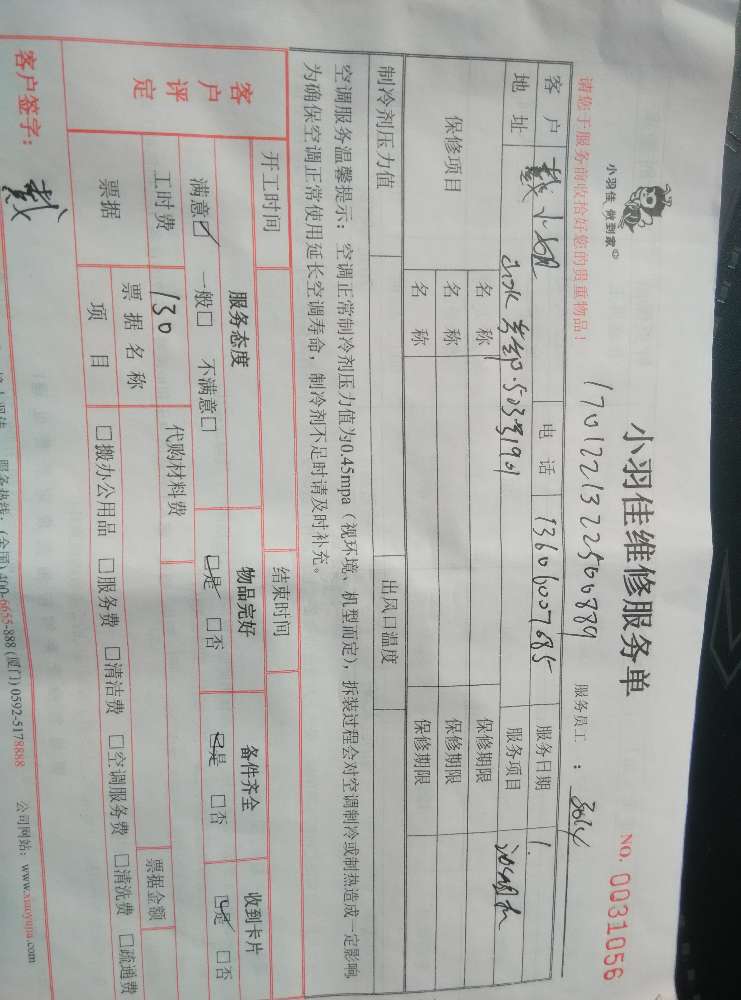 小羽佳 做到家
小羽佳维修服务单
NO. 0031056
请您于服务前收拾好您的贵重物品！
17012213225000889
服务员工：
客户 戴小姐 电话 13606007685 服务日期 1.
地址 523号1901 服务项目
保修项目 名称 保修期限
名称 保修期限
名称 保修期限
制冷剂压力值 出风口温度
空调服务温馨提示：空调正常制冷剂压力值为0.45mpa（视环境、机型而定），拆装过程会对空调制冷或制热造成一定影响
为确保空调正常使用延长空调寿命，制冷剂不足时请及时补充。
开工时间 结束时间
客户评定 服务态度 物品完好 备件齐全 收到卡片
满意☑ 一般□ 不满意□ ☑是 □否 ☑是 □否 ☑是 □否
工时费 130 代购材料费
票据 票据名称 票据金额
项目 □搬办公用品 □服务费 □清洁费 □空调服务费 □清洗费 □疏通费
客户签字： 戴
服务热线：(全国) 400-6655-888 (厦门) 0592-5178888 公司网站：www.xiaoyujia.com